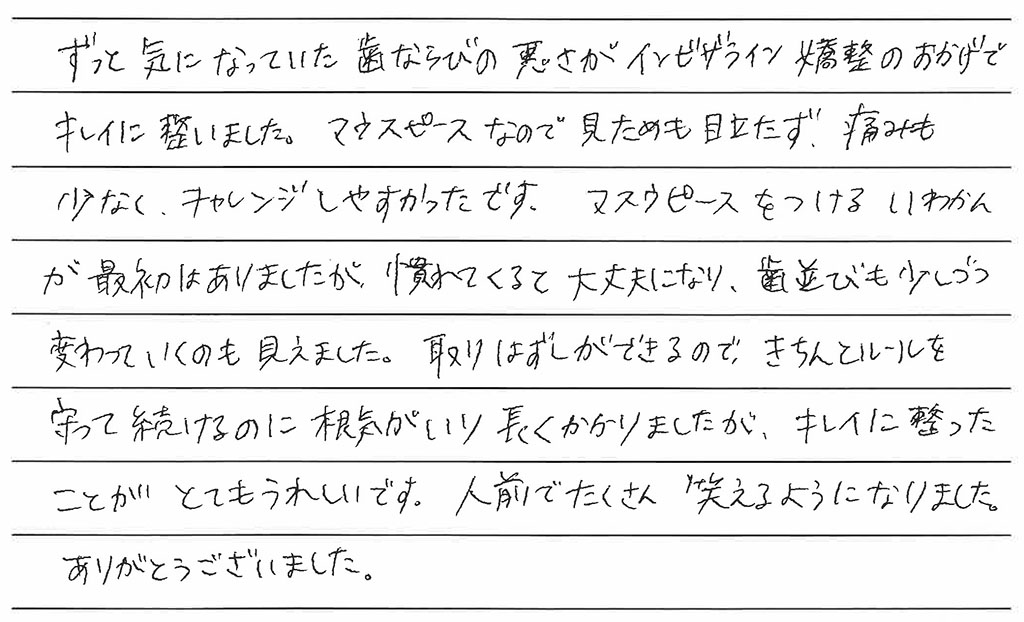 ずっと気になっていた歯ならびの悪さがインビザライン矯整のおかげで
キレイに整いました。マウスピースなので見ためも目立たず、痛みも
少なく、チャレンジしやすかったです。 マスウピースをつけるいわかん
が最初はありましたが、慣れてくると大丈夫になり、歯並びも少しづつ
変わっていくのも見えました。取りはずしができるので、きちんとルールを
守って続けるのに根気がいり長くかかりましたが、キレイに整った
ことがとてもうれしいです。人前でたくさん笑えるようになりました。
ありがとうございました。